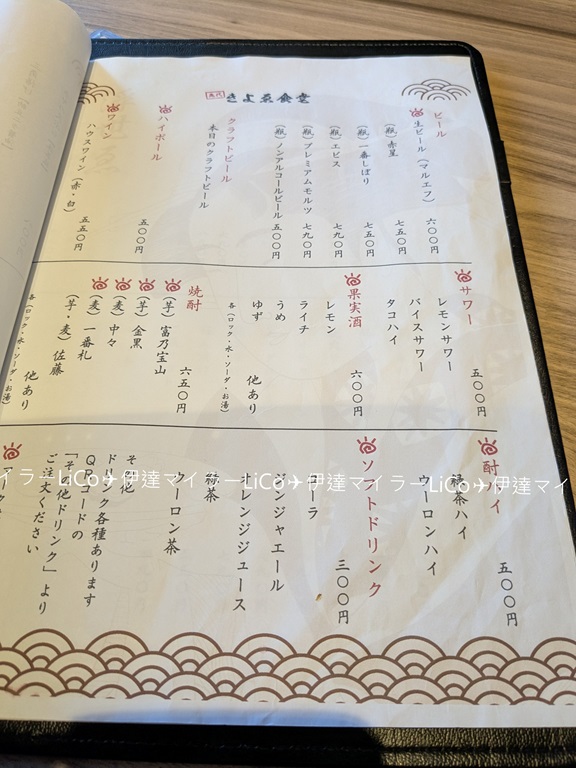 きよゑ食堂
ビール
生ビール（マルエフ） 六〇〇円
（瓶）赤星 七五〇円
（瓶）一番しぼり 七五〇円
（瓶）エビス 七九〇円
（瓶）プレミアムモルツ 七九〇円
（瓶）ノンアルコールビール 五〇〇円
クラフトビール
本日のクラフトビール
ハイボール 五〇〇円
ワイン
ハウスワイン（赤・白） 五五〇円
サワー 五〇〇円
レモンサワー
バイスサワー
タコハイ
果実酒 六〇〇円
レモン
ライチ
うめ
ゆず 他あり
各（ロック・水・ソーダ・お湯）
焼酎 六五〇円
（芋）富乃宝山
（芋）金黒
（麦）中々
（麦）一番札
（芋・麦）佐藤
他あり
各（ロック・水・ソーダ・お湯）
酎ハイ 五〇〇円
緑茶ハイ
ウーロンハイ
ソフトドリンク 三〇〇円
コーラ
ジンジャエール
オレンジジュース
緑茶
ウーロン茶
その他
ドリンク各種あります
QRコードの
「その他ドリンク」より
ご注文ください
イラーLiCo✈伊達マイラーLiCo✈伊達マイラーLiCo✈伊達マイ